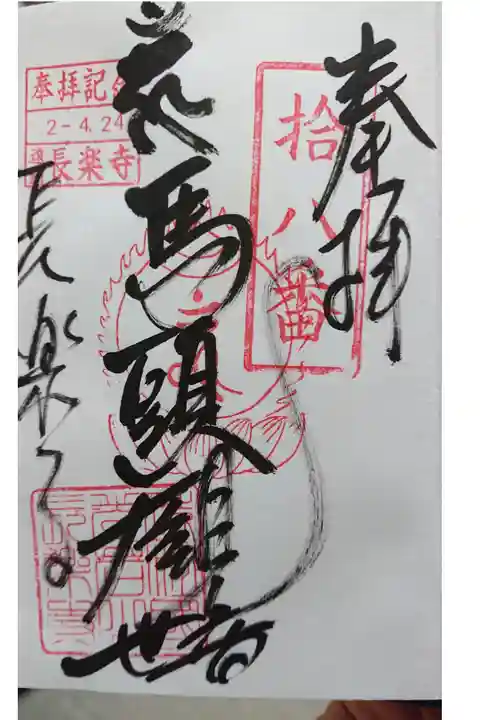 奉拝
拾八番
馬頭觀世音
奉拝記念
2-4.24
長楽寺
長楽寺